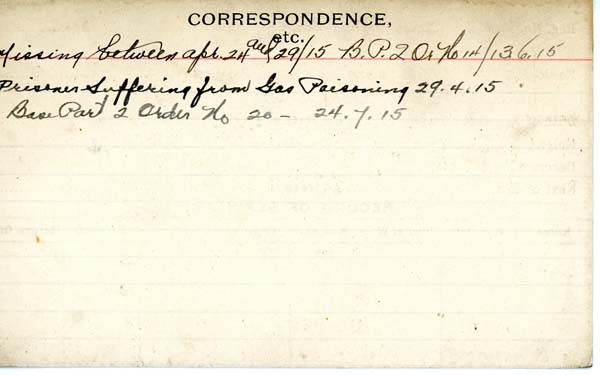 CORRESPONDENCE,
etc.
Missing between apr. 24 and 29/15 B.P.2 Or No 14/13.6.15
Prisoner Suffering from Gas Poisoning 29.4.15
Base Part 2 Order No 20 - 24.7.15